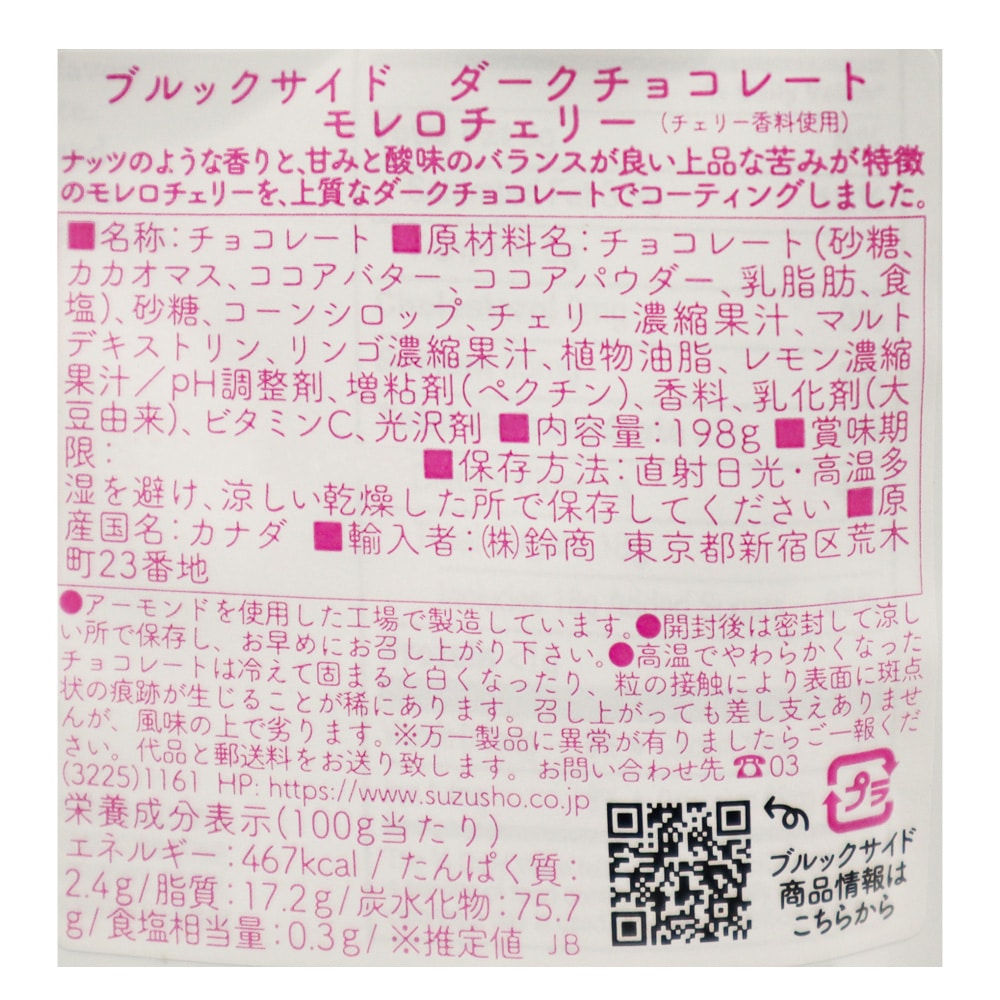 ブルックサイド ダークチョコレート
モレロチェリー (チェリー香料使用)
ナッツのような香りと、甘みと酸味のバランスが良い上品な苦みが特徴
のモレロチェリーを、上質なダークチョコレートでコーティングしました。
■名称：チョコレート ■原材料名：チョコレート(砂糖、
カカオマス、ココアバター、ココアパウダー、乳脂肪、食
塩)、砂糖、コーンシロップ、チェリー濃縮果汁、マルト
デキストリン、リンゴ濃縮果汁、植物油脂、レモン濃縮
果汁／pH調整剤、増粘剤(ペクチン)、香料、乳化剤(大
豆由来)、ビタミンC、光沢剤 ■内容量：198g ■賞味期
限： ■保存方法：直射日光・高温多
湿を避け、涼しい乾燥した所で保存してください ■原
産国名：カナダ ■輸入者：(株)鈴商 東京都新宿区荒木
町23番地
●アーモンドを使用した工場で製造しています。●開封後は密封して涼し
い所で保存し、お早めにお召し上がり下さい。●高温でやわらかくなった
チョコレートは冷えて固まると白くなったり、粒の接触により表面に斑点
状の痕跡が生じることが稀にあります。召し上がっても差し支えありませ
んが、風味の上で劣ります。※万一製品に異常が有りましたらご一報くだ
さい。代品と郵送料をお送り致します。お問い合わせ先 ☎03
(3225)1161 HP: https://www.suzusho.co.jp
プラ
栄養成分表示(100g当たり)
エネルギー：467kcal / たんぱく質：
2.4g/脂質：17.2g/炭水化物：75.7
g/食塩相当量：0.3g/ ※推定値 JB
ブルックサイド
商品情報は
こちらから